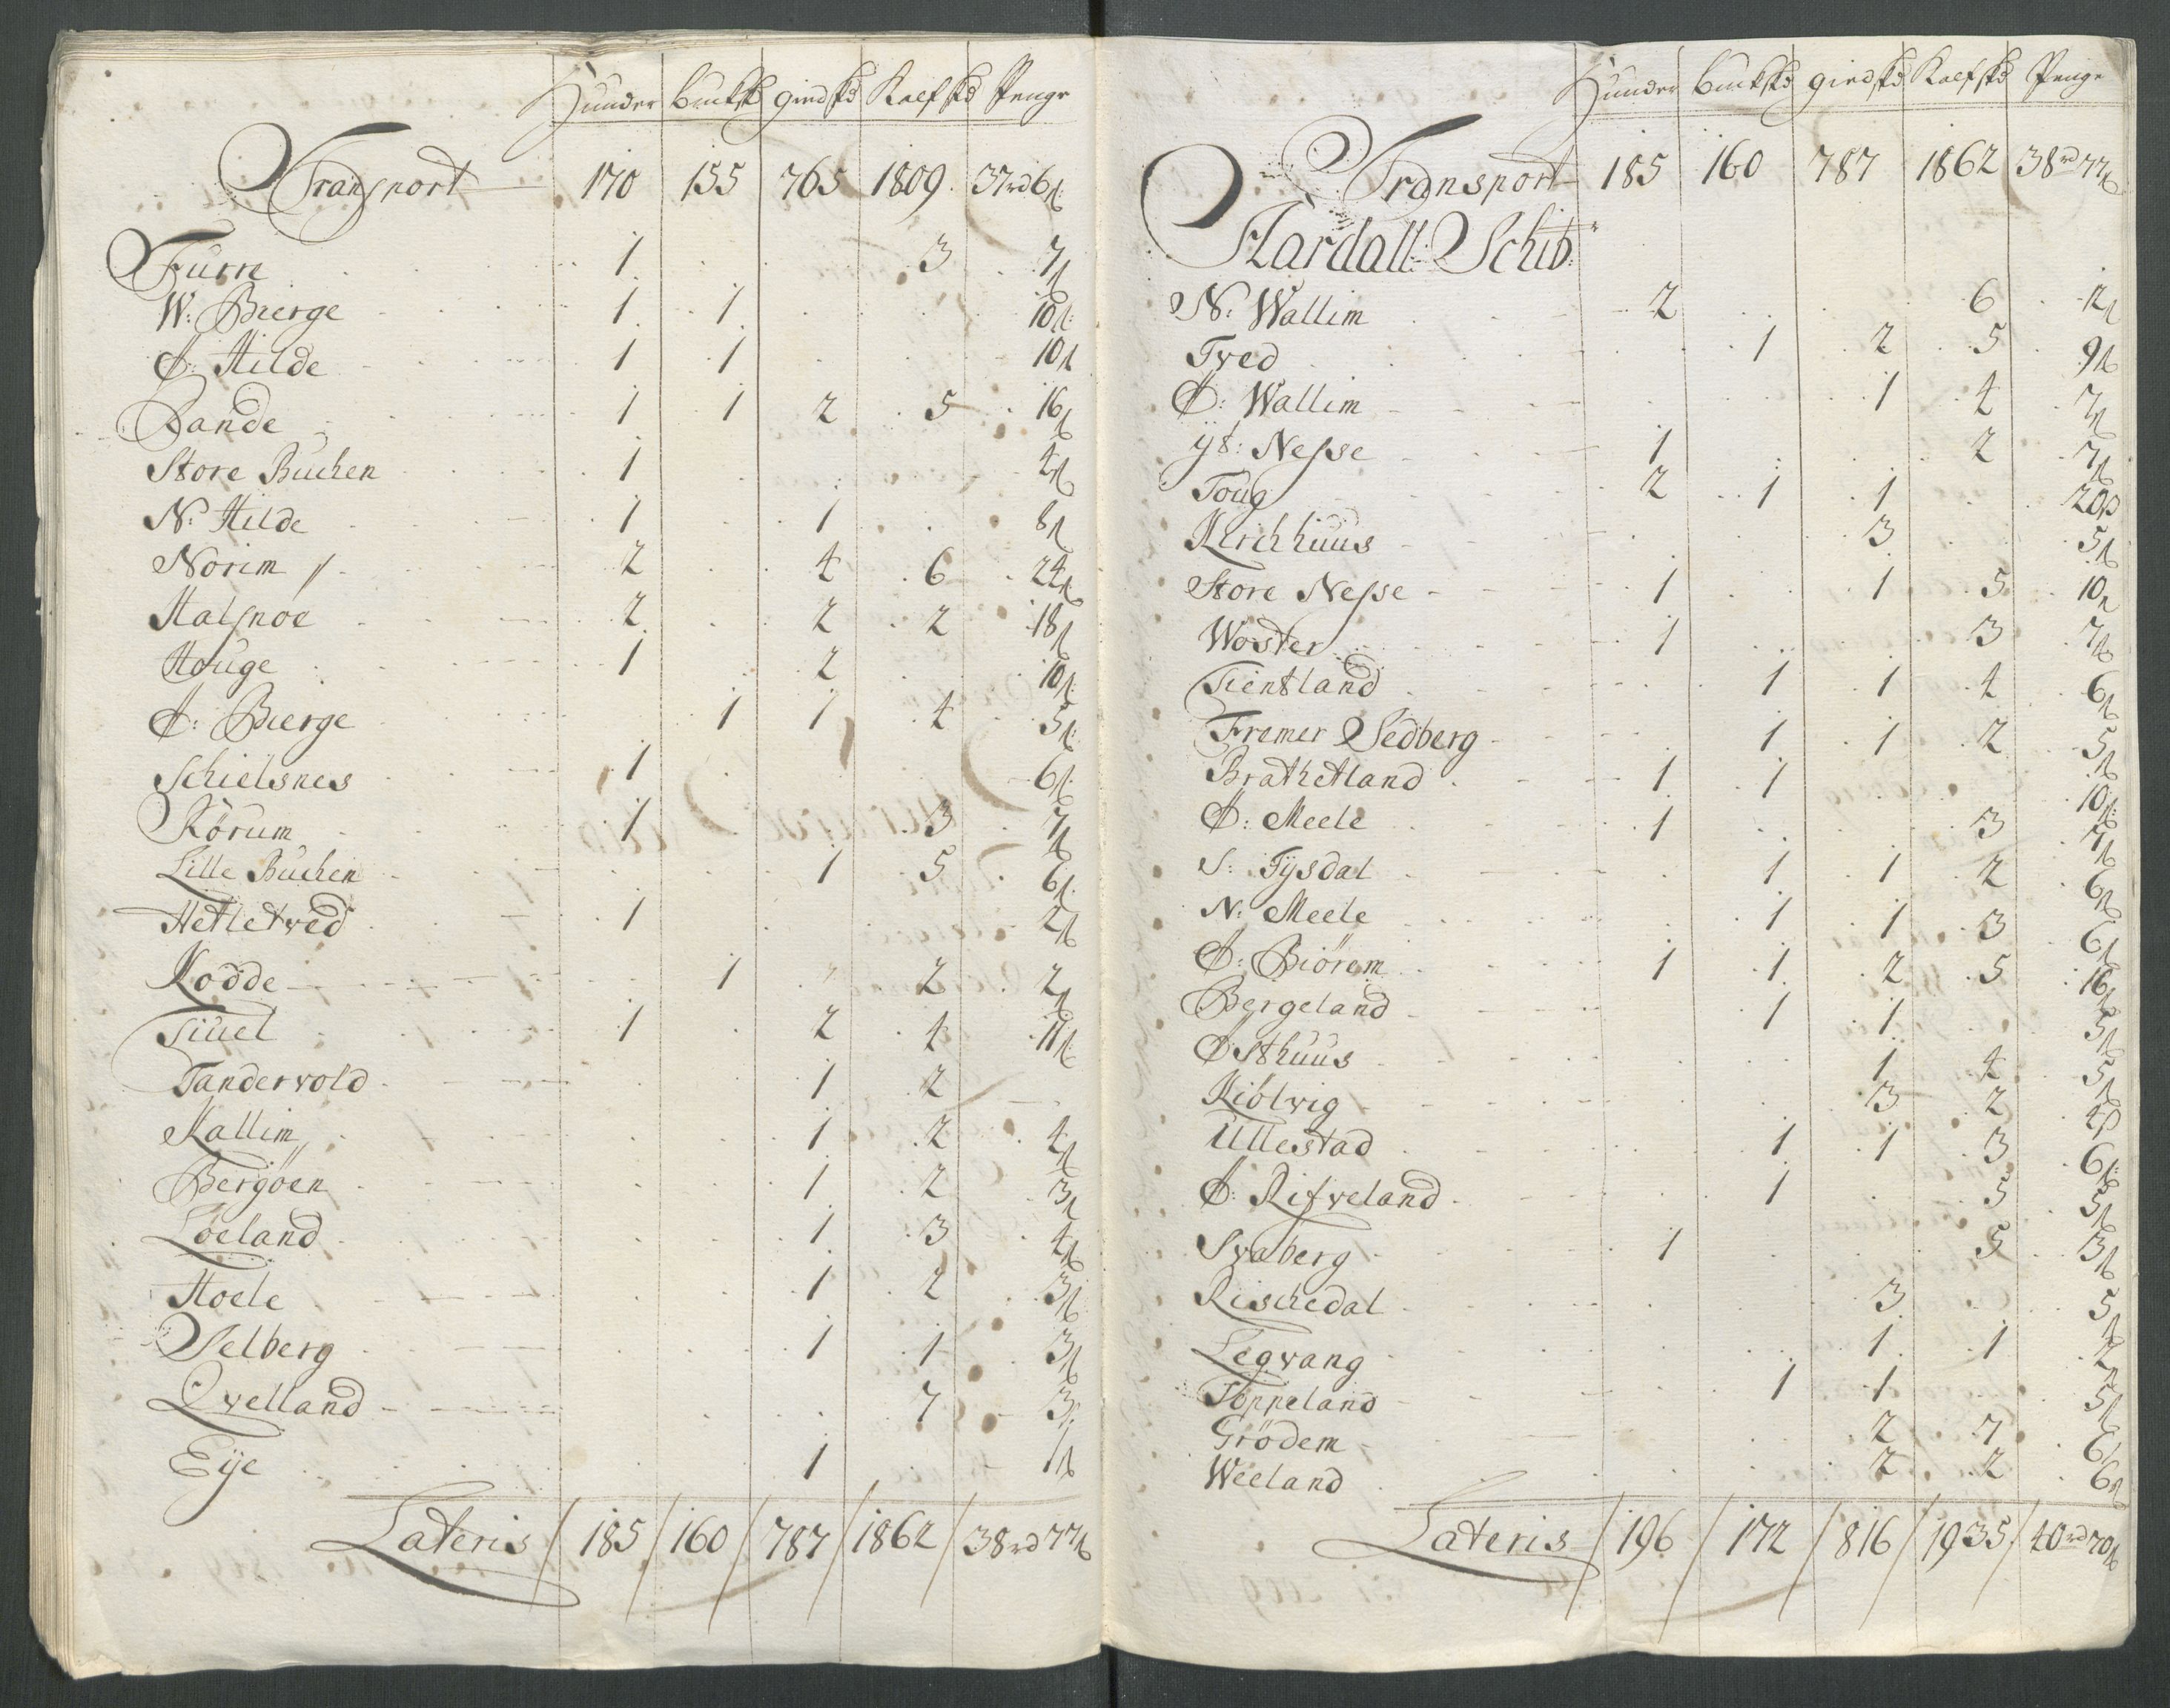 Hunder Bucksk giedskd Kalfskd Penge
Transport 170 155 765 1809 37rd 6s
Furre 1 3 7s
W: Bierge 1 1 10s
Ø: Hilde 1 1 10s
Sande 1 1 2 5 16s
Store Buchen 1 4s
N: Hilde 1 1 8s
Norim 2 4 6 24s
Halsnøe 2 2 2 18s
Houge 1 2 10s
Ø: Bierge 1 1 4 5s
Schielsnes 1 6s
Rørum 1 3 7s
Lille Buchen 1 5 6s
Hetletved 1 2s
Kodde 1 2 2s
Tiuel 1 2 4 11s
Tandervold 1 2
Kallim 1 2 4s
Bergøen 1 2 3s
Løeland 1 3 4s
Hoele 1 2 3s
Selberg 1 1 3s
Qvelland 7 3s
Eÿe 1 1s
Lateris 185 160 787 1862 38rd 77s
Hunder Buckskd giedskd Kalfskd Penge
Transport 185 160 787 1862 38rd 77s
Hardall: Schib:
N: Wallim 2 6 12s
Tved 1 2 5 9s
Ø: Wallim 1 4 7s
ÿt: Nesse 1 2 7s
Toug 2 1 1 20s
Kirchhuus 3 5s
Store Nesse 1 1 5 10s
Woster 1 3 7s
Tientland 1 1 4 6s
Fremer Sedberg 1 1 2 5s
Brathetland 1 1 10s
Ø: Meele 1 3 7s
S: Tÿsdal 1 1 2 6s
N: Meele 1 1 3 6s
Ø: Biørem 1 1 2 5 16s
Bergeland 1 1 5s
Østhuus 1 4 5s
Kiølvig 3 2 4s
Ullestad 1 1 3 6s
Ø: Rifveland 1 5 5s
Svaberg 1 5 3s
Rischedal 3 5s
Legvang 1 1 2s
Toppeland 1 1 5s
Grødem 2 7 6s
Weeland 2 2 6s
Lateris 196 172 816 1935 40rd 70s